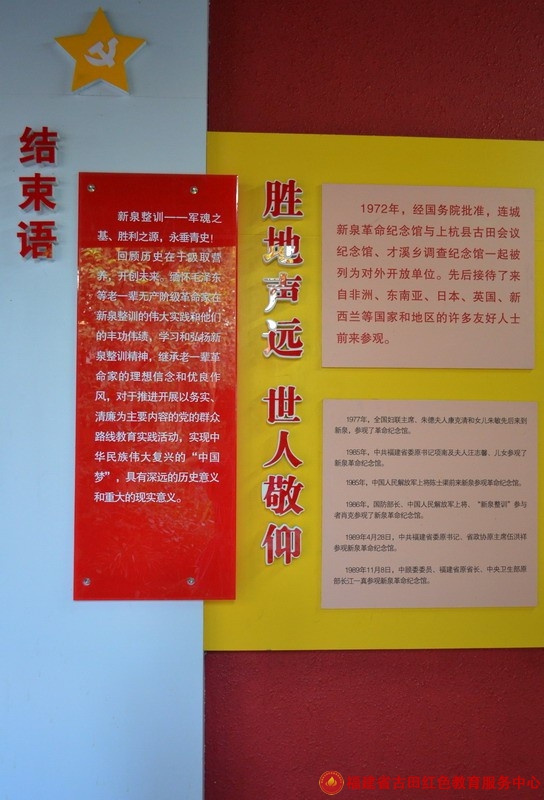 结束语
新泉整训——军魂之
基、胜利之源，永垂青史！
回顾历史在于吸取营
养、开创未来。缅怀毛泽东
等老一辈无产阶级革命家在
新泉整训的伟大实践和他们
的丰功伟绩，学习和弘扬新
泉整训精神，继承老一辈革
命家的理想信念和优良作
风，对于推进开展以务实、
清廉为主要内容的党的群众
路线教育实践活动，实现中
华民族伟大复兴的“中国
梦”，具有深远的历史意义
和重大的现实意义。
胜地声远 世人敬仰
1972年，经国务院批准，连城
新泉革命纪念馆与上杭县古田会议
纪念馆、才溪乡调查纪念馆一起被
列为对外开放单位。先后接待了来
自非洲、东南亚、日本、英国、新
西兰等国家和地区的许多友好人士
前来参观。
1977年，全国妇联主席、朱德夫人康克清和女儿朱敏先后来到
新泉，参观了革命纪念馆。
1985年，中共福建省委原书记项南及夫人汪志馨、儿女参观了
新泉革命纪念馆。
1985年，中国人民解放军上将陈士榘前来新泉参观革命纪念馆。
1986年，国防部长、中国人民解放军上将、“新泉整训”参与
者肖克参观了新泉革命纪念馆。
1989年4月28日，中共福建省委原书记、省政协原主席伍洪祥
参观新泉革命纪念馆。
1989年11月8日，中顾委委员、福建省原省长、中央卫生部原
部长江一真参观新泉革命纪念馆。
福建省古田红色教育服务中心